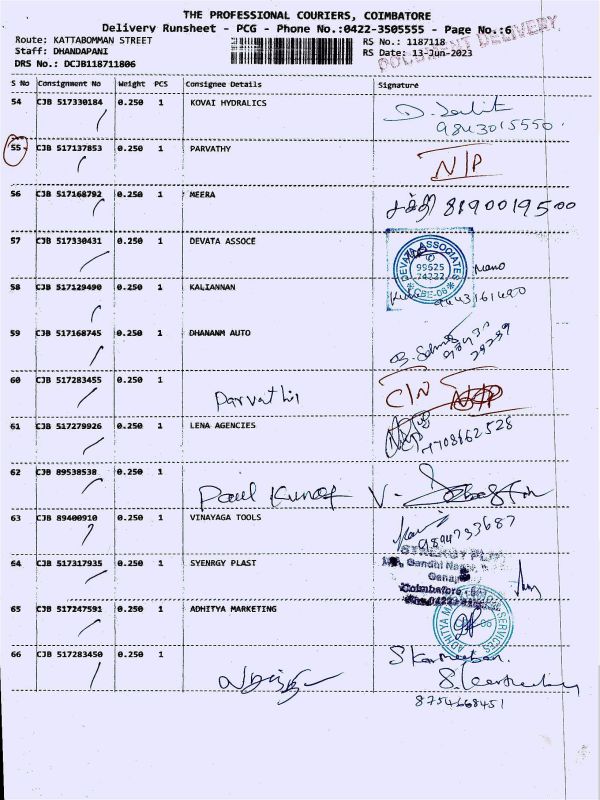 THE PROFESSIONAL COURIERS, COIMBATORE
Delivery Runsheet - PCG - Phone No.:0422-3505555 - Page No.:6
Route: KATTABOMMAN STREET RS No.: 1187118
Staff: DHANDAPANI RS Date: 13-Jun-2023
DRS No.: DCJB118711806 DOCUMENT DELIVERY
S No Consignment No Weight PCS Consignee Details Signature
54 CJB 517330184 0.250 1 KOVAI HYDRALICS
9843015550
55 CJB 517137853 0.250 1 PARVATHY N/P
56 CJB 517168792 0.250 1 MEERA சக்தி 8190019500
57 CJB 517330431 0.250 1 DEVATA ASSOCE
DEVATA ASSOCIATES
99625
74222
CBE-06
Mano
58 CJB 517129490 0.250 1 KALIANNAN
9443161490
59 CJB 517168745 0.250 1 DHANANM AUTO
60 CJB 517283455 0.250 1 Parvathi C/N
61 CJB 517279926 0.250 1 LENA AGENCIES
9708662528
62 CJB 89538538 0.250 1 Paul Kumar V.
63 CJB 89400910 0.250 1 VINAYAGA TOOLS
9894733687
64 CJB 517317935 0.250 1 SYENRGY PLAST
SYNERGY PLAST
Gandhi Nagar
Ganapathy
Coimbatore
65 CJB 517247591 0.250 1 ADHITYA MARKETING
ADHITYA MARKETING SERVICES
66 CJB 517283450 0.250 1 S Kartheeban.
8754668451